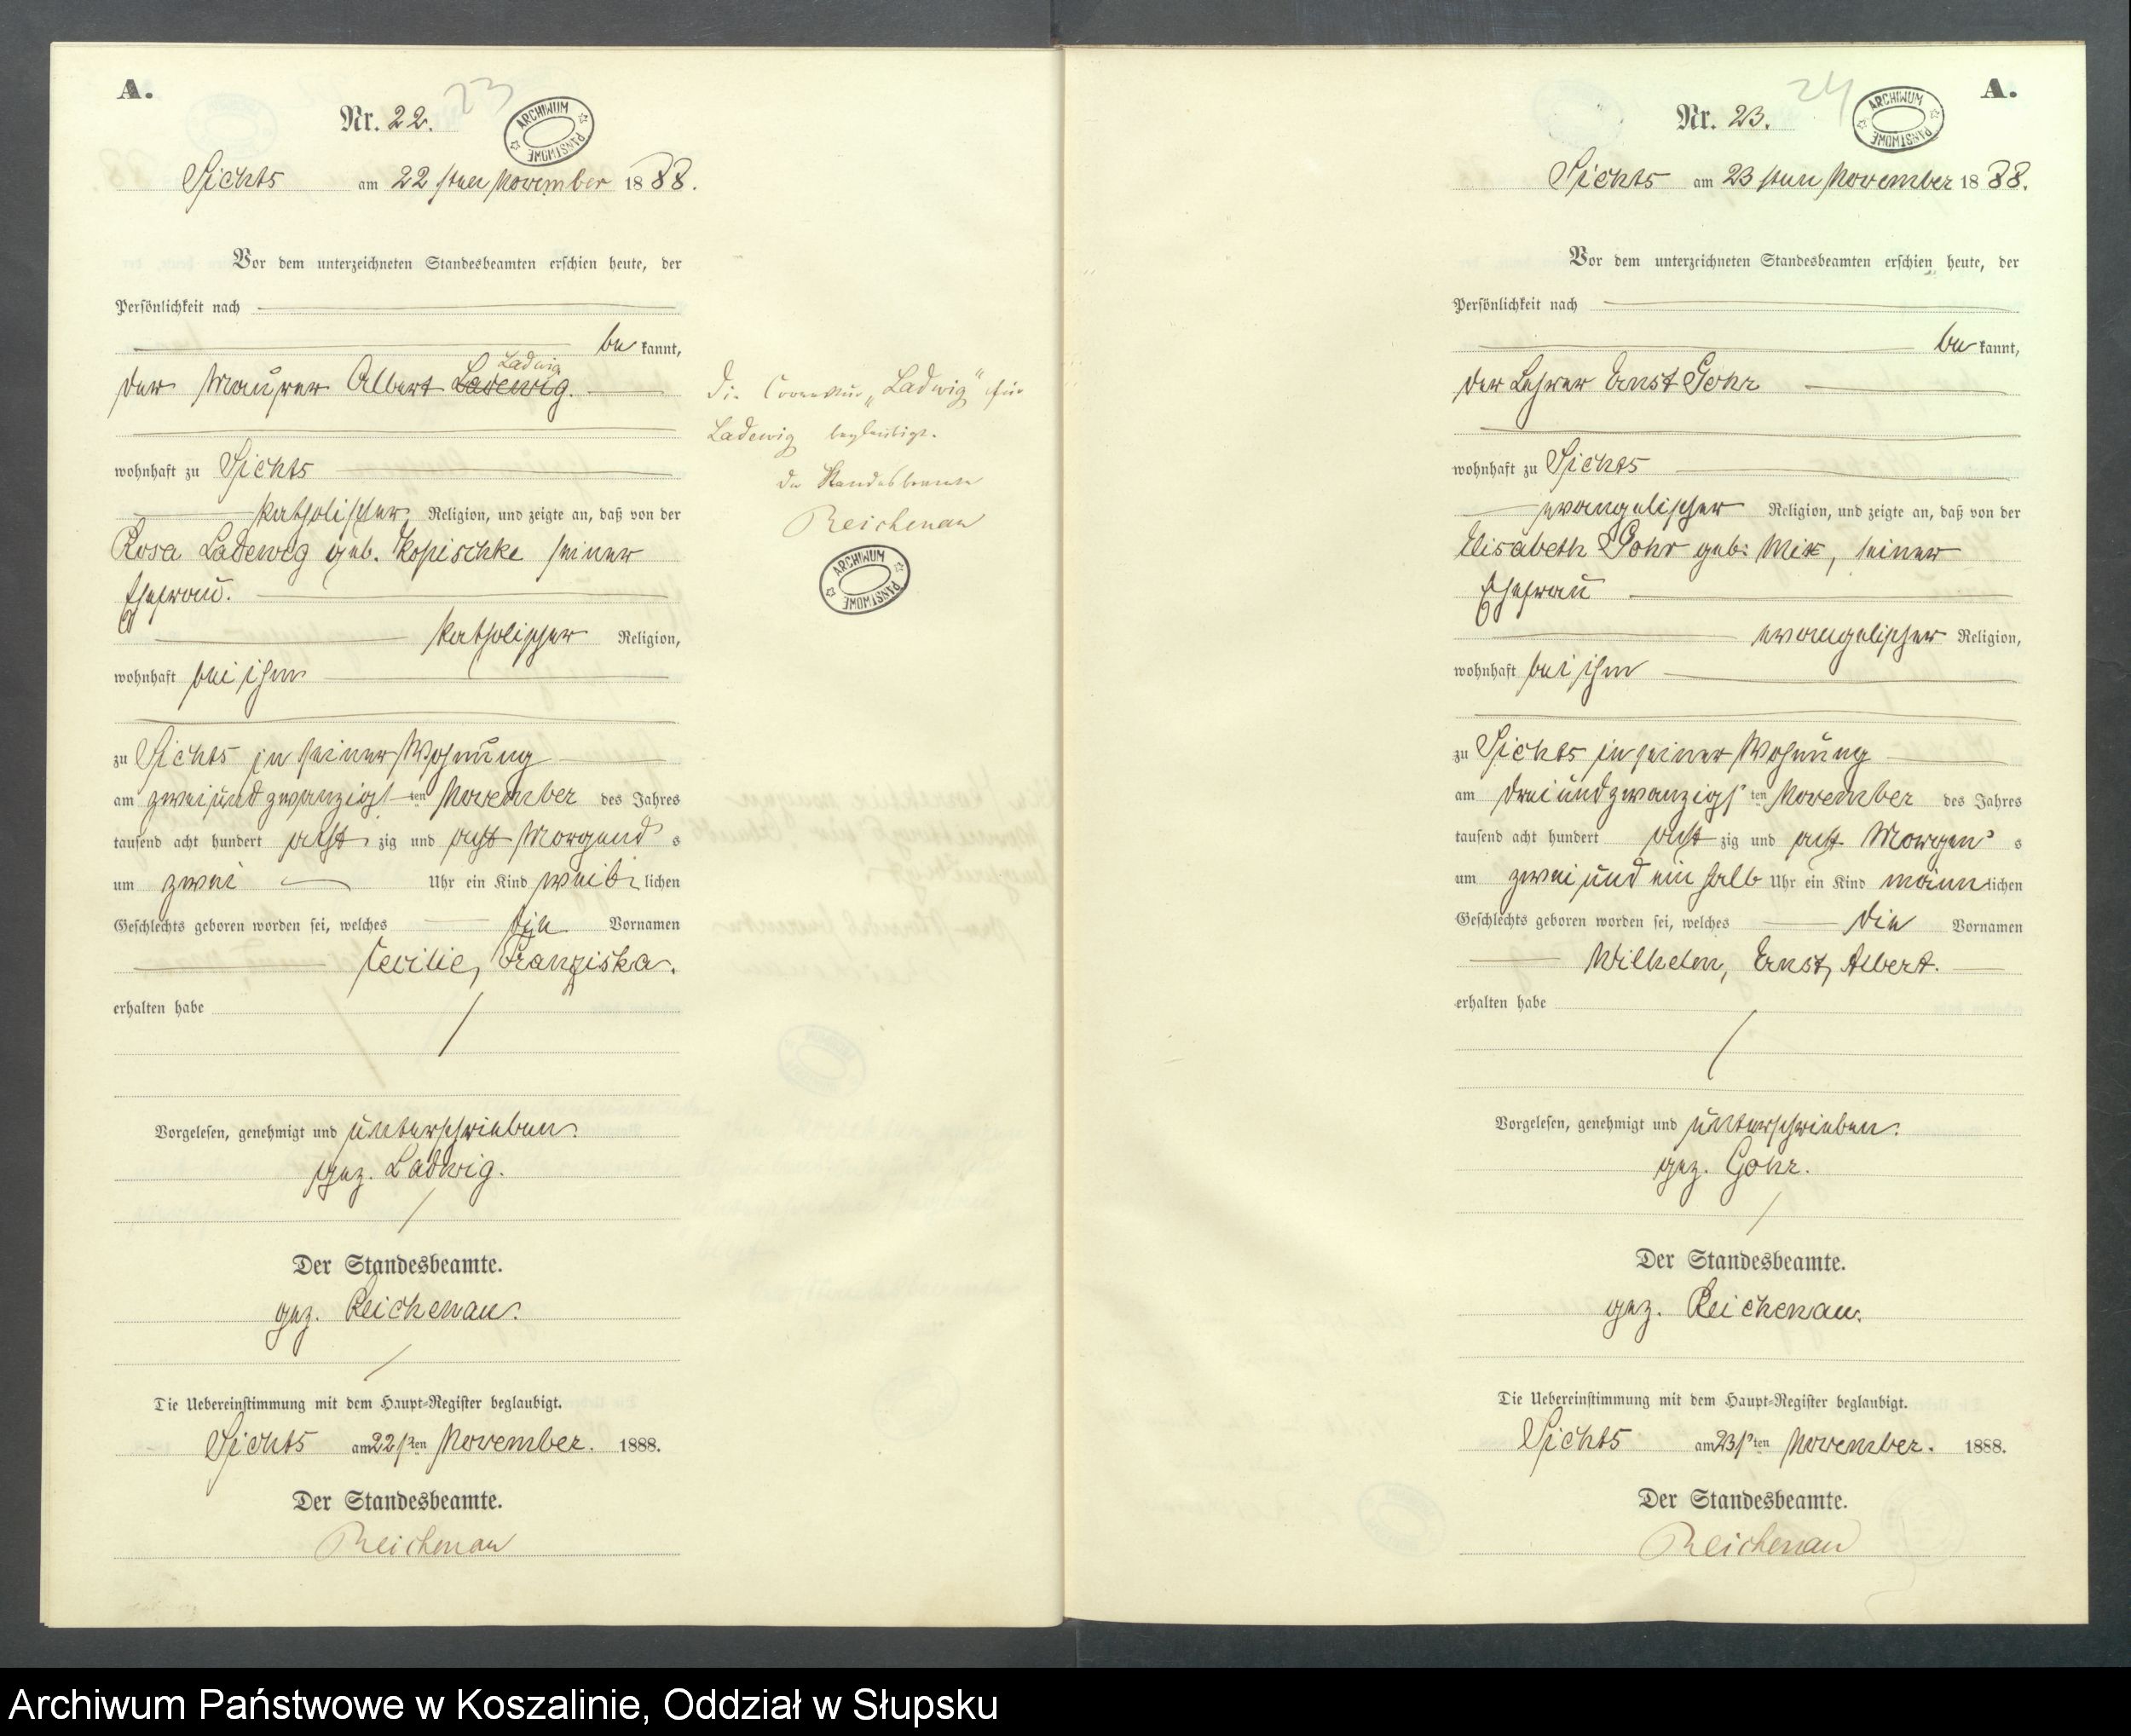 A.
Nr. 22.
23
ARCHIWUM PAŃSTWOWE
Sichts am 22 sten November 1888.
Vor dem unterzeichneten Standesbeamten erschien heute, der
Persönlichkeit nach
be kannt,
Ladwig
der Maurer Albert Ladewig.
wohnhaft zu Sichts
katholischer Religion, und zeigte an, daß von der
Rosa Ladewig geb. Kopischke seiner
Ehefrau.
katholischer Religion,
wohnhaft bei ihm
zu Sichts in seiner Wohnung
am zweiundzwanzigs ten November des Jahres
tausend acht hundert acht zig und acht Morgends
um zwei Uhr ein Kind weib lichen
Geschlechts geboren worden sei, welches die Vornamen
Cecilie, Franziska.
erhalten habe
Vorgelesen, genehmigt und unterschrieben.
gez. Ladwig.
Der Standesbeamte.
gez. Reichenau.
Die Uebereinstimmung mit dem Haupt-Register beglaubigt.
Sichts am 22 sten November. 1888.
Der Standesbeamte.
Reichenau
Die Correktur „Ladwig" für
Ladewig beglaubigt.
Der Standesbeamte
Reichenau
ARCHIWUM PAŃSTWOWE
A.
Nr. 23.
24
ARCHIWUM PAŃSTWOWE
Sichts am 23 sten November 1888.
Vor dem unterzeichneten Standesbeamten erschien heute, der
Persönlichkeit nach
be kannt,
der Lehrer Ernst Gohr
wohnhaft zu Sichts
evangelischer Religion, und zeigte an, daß von der
Elisabeth Gohr geb. Mix, seiner
Ehefrau
evangelischer Religion,
wohnhaft bei ihm
zu Sichts in seiner Wohnung
am dreiundzwanzigs ten November des Jahres
tausend acht hundert acht zig und acht Morgens
um zwei und ein halb Uhr ein Kind männ lichen
Geschlechts geboren worden sei, welches die Vornamen
Wilhelm, Ernst, Albert.
erhalten habe
Vorgelesen, genehmigt und unterschrieben.
gez. Gohr.
Der Standesbeamte.
gez. Reichenau.
Die Uebereinstimmung mit dem Haupt-Register beglaubigt.
Sichts am 23 sten November. 1888.
Der Standesbeamte.
Reichenau
Archiwum Państwowe w Koszalinie, Oddział w Słupsku